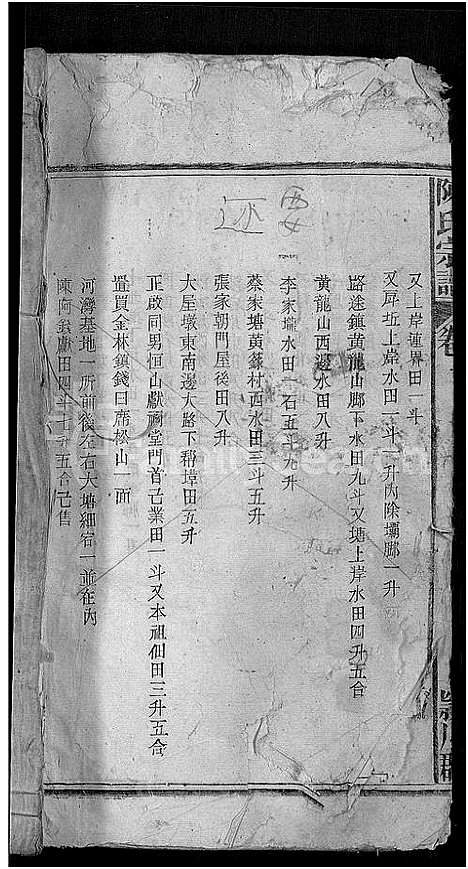 陳氏宗譜
卷
又上岸連界田一斗
又屏坵上岸水田一斗一升內除壩腳一升
路途鎮黄龍山腳下水田九斗又塘上岸水田四升五合
黄龍山西邊水田八升
李家壠水田一石五斗九升
蔡家塘黄篆村西水田三斗五升
張家朝門屋後田八升
大屋墩東南邊大路下稍埠田五升
正啟同男恒山獻祠堂門首己業田一斗又本祖仙田三升五合
疊買金林鎮錢曰席松山一面
河灣基地一所前後左右大塘細宕一並在內
陳阿翁獻田四斗七升五合己售